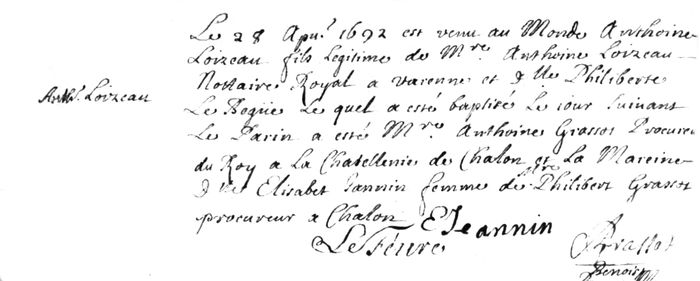 Anth. Loizeau
Le 28 Apv.l 1692 est venu au Monde Anthoine
Loizeau fils Legitime de M.re Anthoine Loizeau
Nottaire Royal a varenne et d lle Philiberte
Le Bogüe Le quel a esté baptisé Le iour suivant
Le Parin a esté M.re Anthoine Grassot Procure.
du Roy a La Chatellenie de Chalon et La Mareine
d lle Elisabet Jannin femme de Philibert Grassot
procureur a Chalon EJeannin
LeFeure Grassot
Benoist